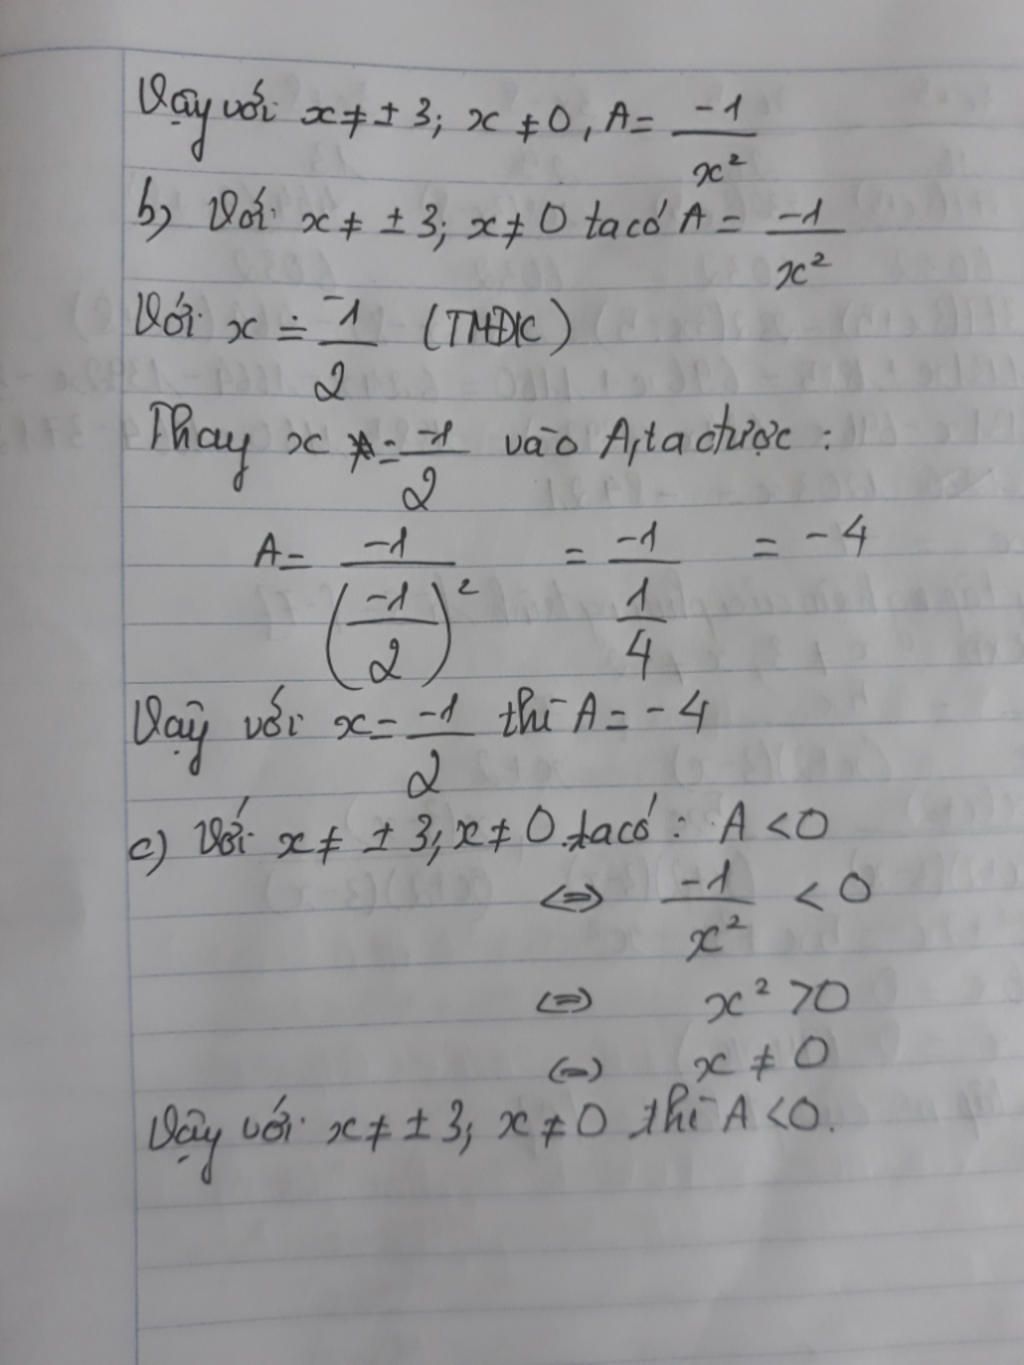 Vậy với x ≠ ± 3; x ≠ 0, A = -1/x²
b) Với x ≠ ± 3; x ≠ 0 ta có A = -1/x²
Với x = -1/2 (TMĐK)
Thay x = -1/2 vào A, ta được :
A = -1/(-1/2)² = -1/(1/4) = -4
Vậy với x = -1/2 thì A = -4
c) Với x ≠ ± 3; x ≠ 0. ta có : A < 0
⇔ -1/x² < 0
⇔ x² > 0
⇔ x ≠ 0
Vậy với x ≠ ± 3; x ≠ 0 thì A < 0.